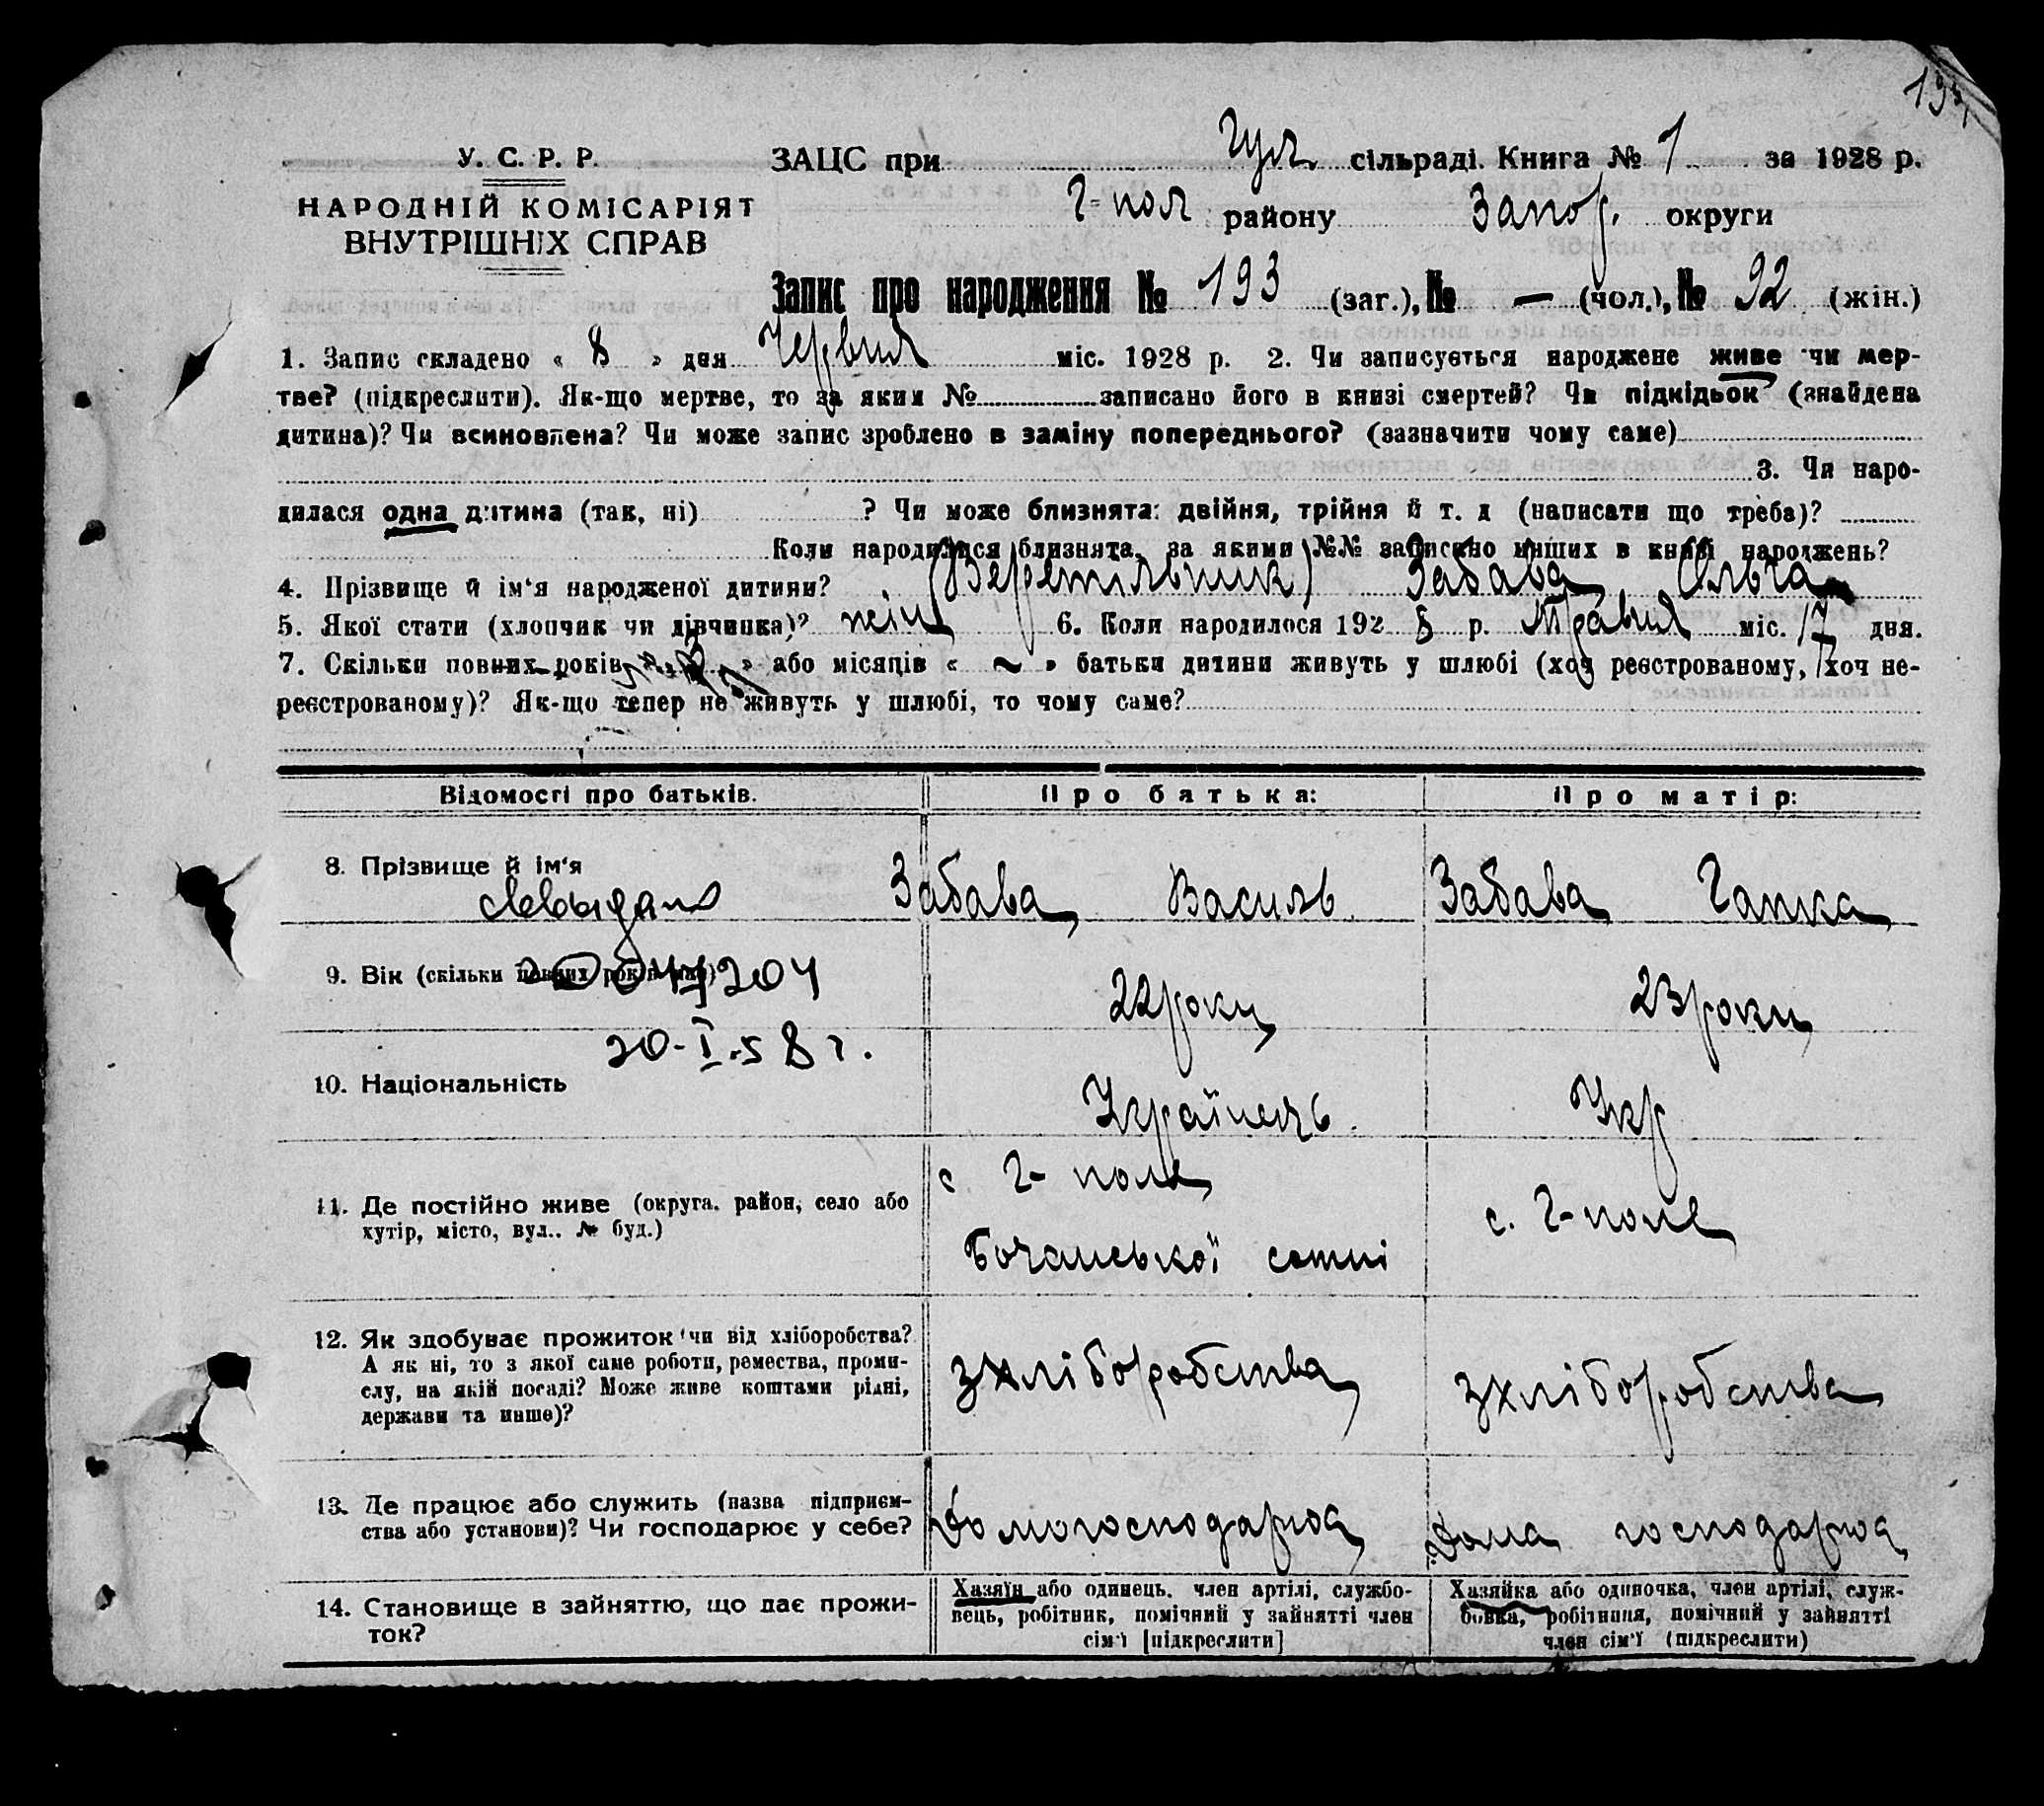 193
У. С. Р. Р.
НАРОДНІЙ КОМІСАРІЯТ
ВНУТРІШНІХ СПРАВ
ЗАЦС при Гул сільраді. Книга № 1 за 1928 р.
Г-пол району Запор. округи
Запис про народження № 193 (заг.), № — (чол.), № 92 (жін.)
1. Запис складено « 8 » дня Червня міс. 1928 р. 2. Чи записується народжене живе чи мер-
тве? (підкреслити). Як-що мертве, то за яким № записано його в книзі смертей? Чи підкідьок (знайдена
дитина)? Чи всиновлена? Чи може запис зроблено в заміну попереднього? (зазначити чому саме)
3. Чи наро-
дилася одна дитина (так, ні) ? Чи може близнята: двійня, трійня й т. д (написати що треба)?
Коли народилися близнята, за якими №№ записано инших в книзі народжень?
4. Прізвище й ім'я народженої дитини? (Веретільник) Забава Ольга
5. Якої стати (хлопчик чи дівчинка)? жін 6. Коли народилося 192 8 р. Травня міс. 17 дня.
7. Скільки повних років » або місяців « ~ » батьки дитини живуть у шлюбі (хоч реєстрованому, хоч не-
реєстрованому)? Як-що тепер не живуть у шлюбі, то чому саме?
Відомості про батьків. Про батька: Про матір:
8. Прізвище й ім'я Забава Василь Забава Гапка
9. Вік (скільки повних років має) 22 роки 23 роки
20-I-58 г.
10. Національність Українець. Укр
11. Де постійно живе (округа, район, село або
хутір, місто, вул.. № буд.)
с Г-поле
Бочанської сотні
с. Г-поле
12. Як здобуває прожиток (чи від хліборобства?
А як ні, то з якої саме роботи, ремества, проми-
слу, на якій посаді? Може живе коштами рідні,
держави та инше)?
з хліборобства
з хліборобства
13. Де працює або служить (назва підприєм-
ства або установи)? Чи господарює у себе?
Домогосподарює
Дома господарює
14. Становище в зайняттю, що дає прожи-
ток?
Хазяїн або одинець, член артілі, службо-
вець, робітник, помічний у зайнятті член
сім'ї [підкреслити]
Хазяйка або одиночка, член артілі, служ-
бовка, робітниця, помічний у зайнятті
член сім'ї (підкреслити)